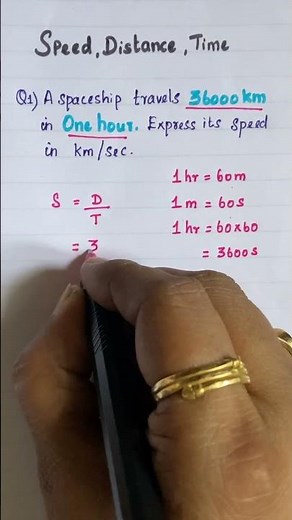 Speed, Distance, Time
Q1) A spaceship travels 36000 km
in One hour. Express its speed
in km/sec.
1 hr = 60m
S = D/T
1 m = 60s
1 hr = 60×60
= 3
= 3600s